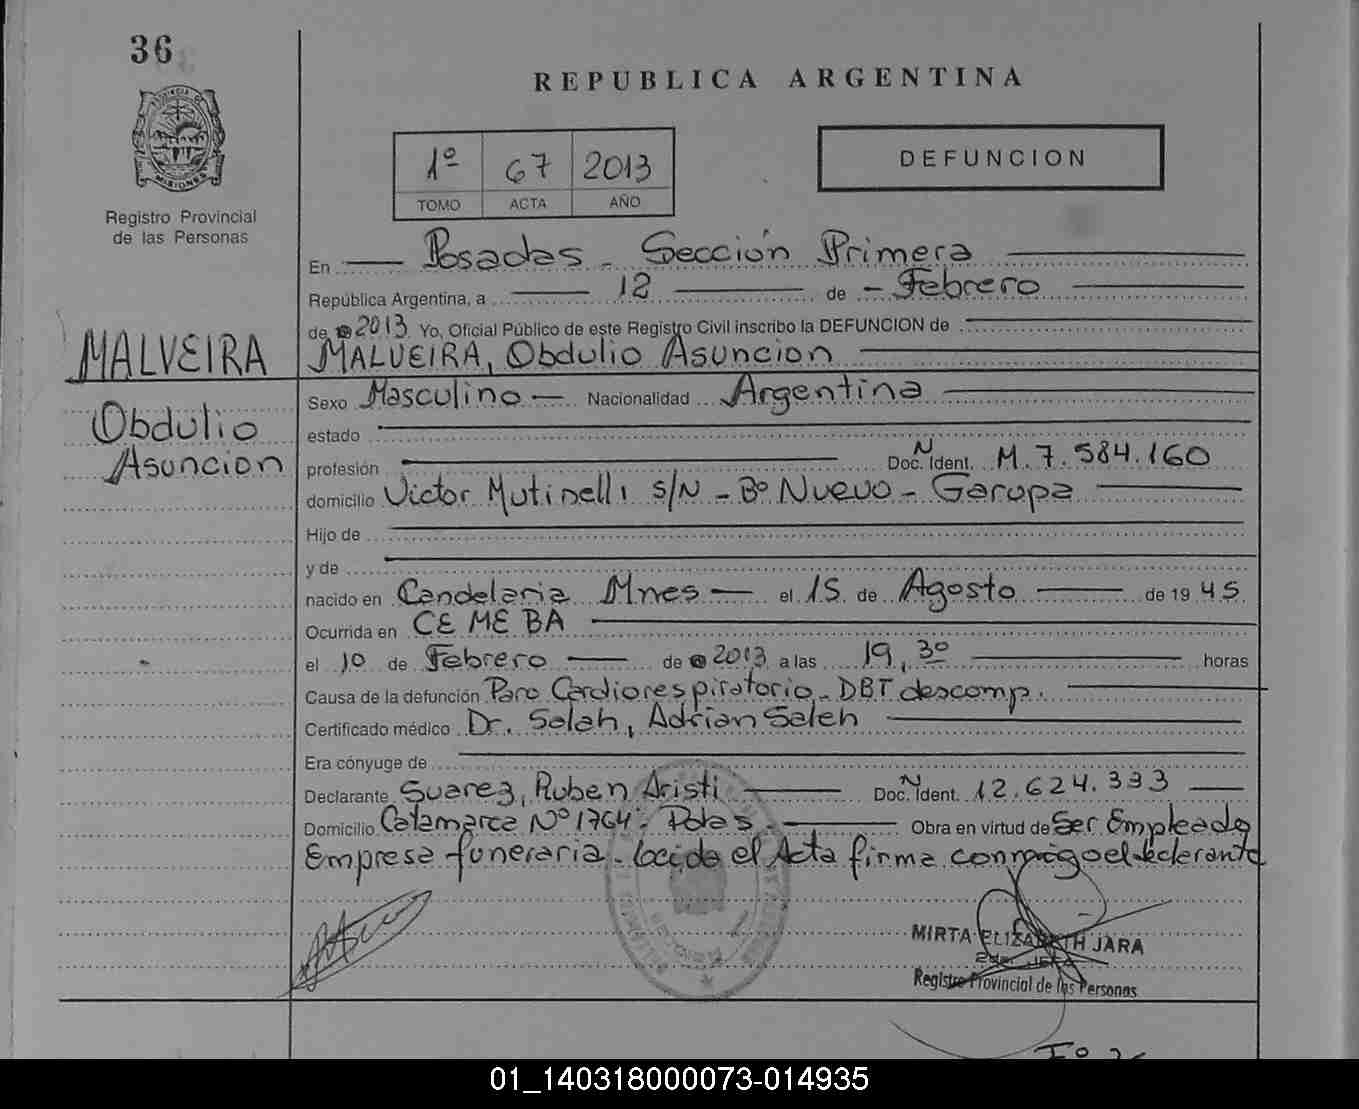 36
REPUBLICA ARGENTINA
PROVINCIA DE
MISIONES
Registro Provincial
de las Personas
1º 67 2013
TOMO ACTA AÑO
DEFUNCION
En Posadas - Sección Primera
República Argentina, a 12 de - Febrero
de 2013 Yo, Oficial Público de este Registro Civil inscribo la DEFUNCION de
MALVEIRA
MALVEIRA, Obdulio Asuncion
Obdulio
Asuncion
Sexo Masculino - Nacionalidad Argentina
estado
profesión Doc. N Ident. M.7.584.160
domicilio Victor Mutinelli S/N - Bº Nuevo - Garupa
Hijo de
y de
nacido en Candelaria Mnes - el 15 de Agosto de 19 45
Ocurrida en CE ME BA
el 10 de Febrero de 2013 a las 19,30 horas
Causa de la defunción Paro Cardiorespiratorio - DBT descomp.
Certificado médico Dr. Salah, Adrian Saleh
Era cónyuge de
Declarante Suarez, Ruben Aristi Doc. N Ident. 12.624.333
Domicilio Catamarca Nº 1764 - Pdas. Obra en virtud de Ser Empleado
Empresa funeraria. Leida el Acta firma conmigo el declarante
MIRTA ELIZABETH JARA
2da. JEFA
Registro Provincial de las Personas
01_140318000073-014935